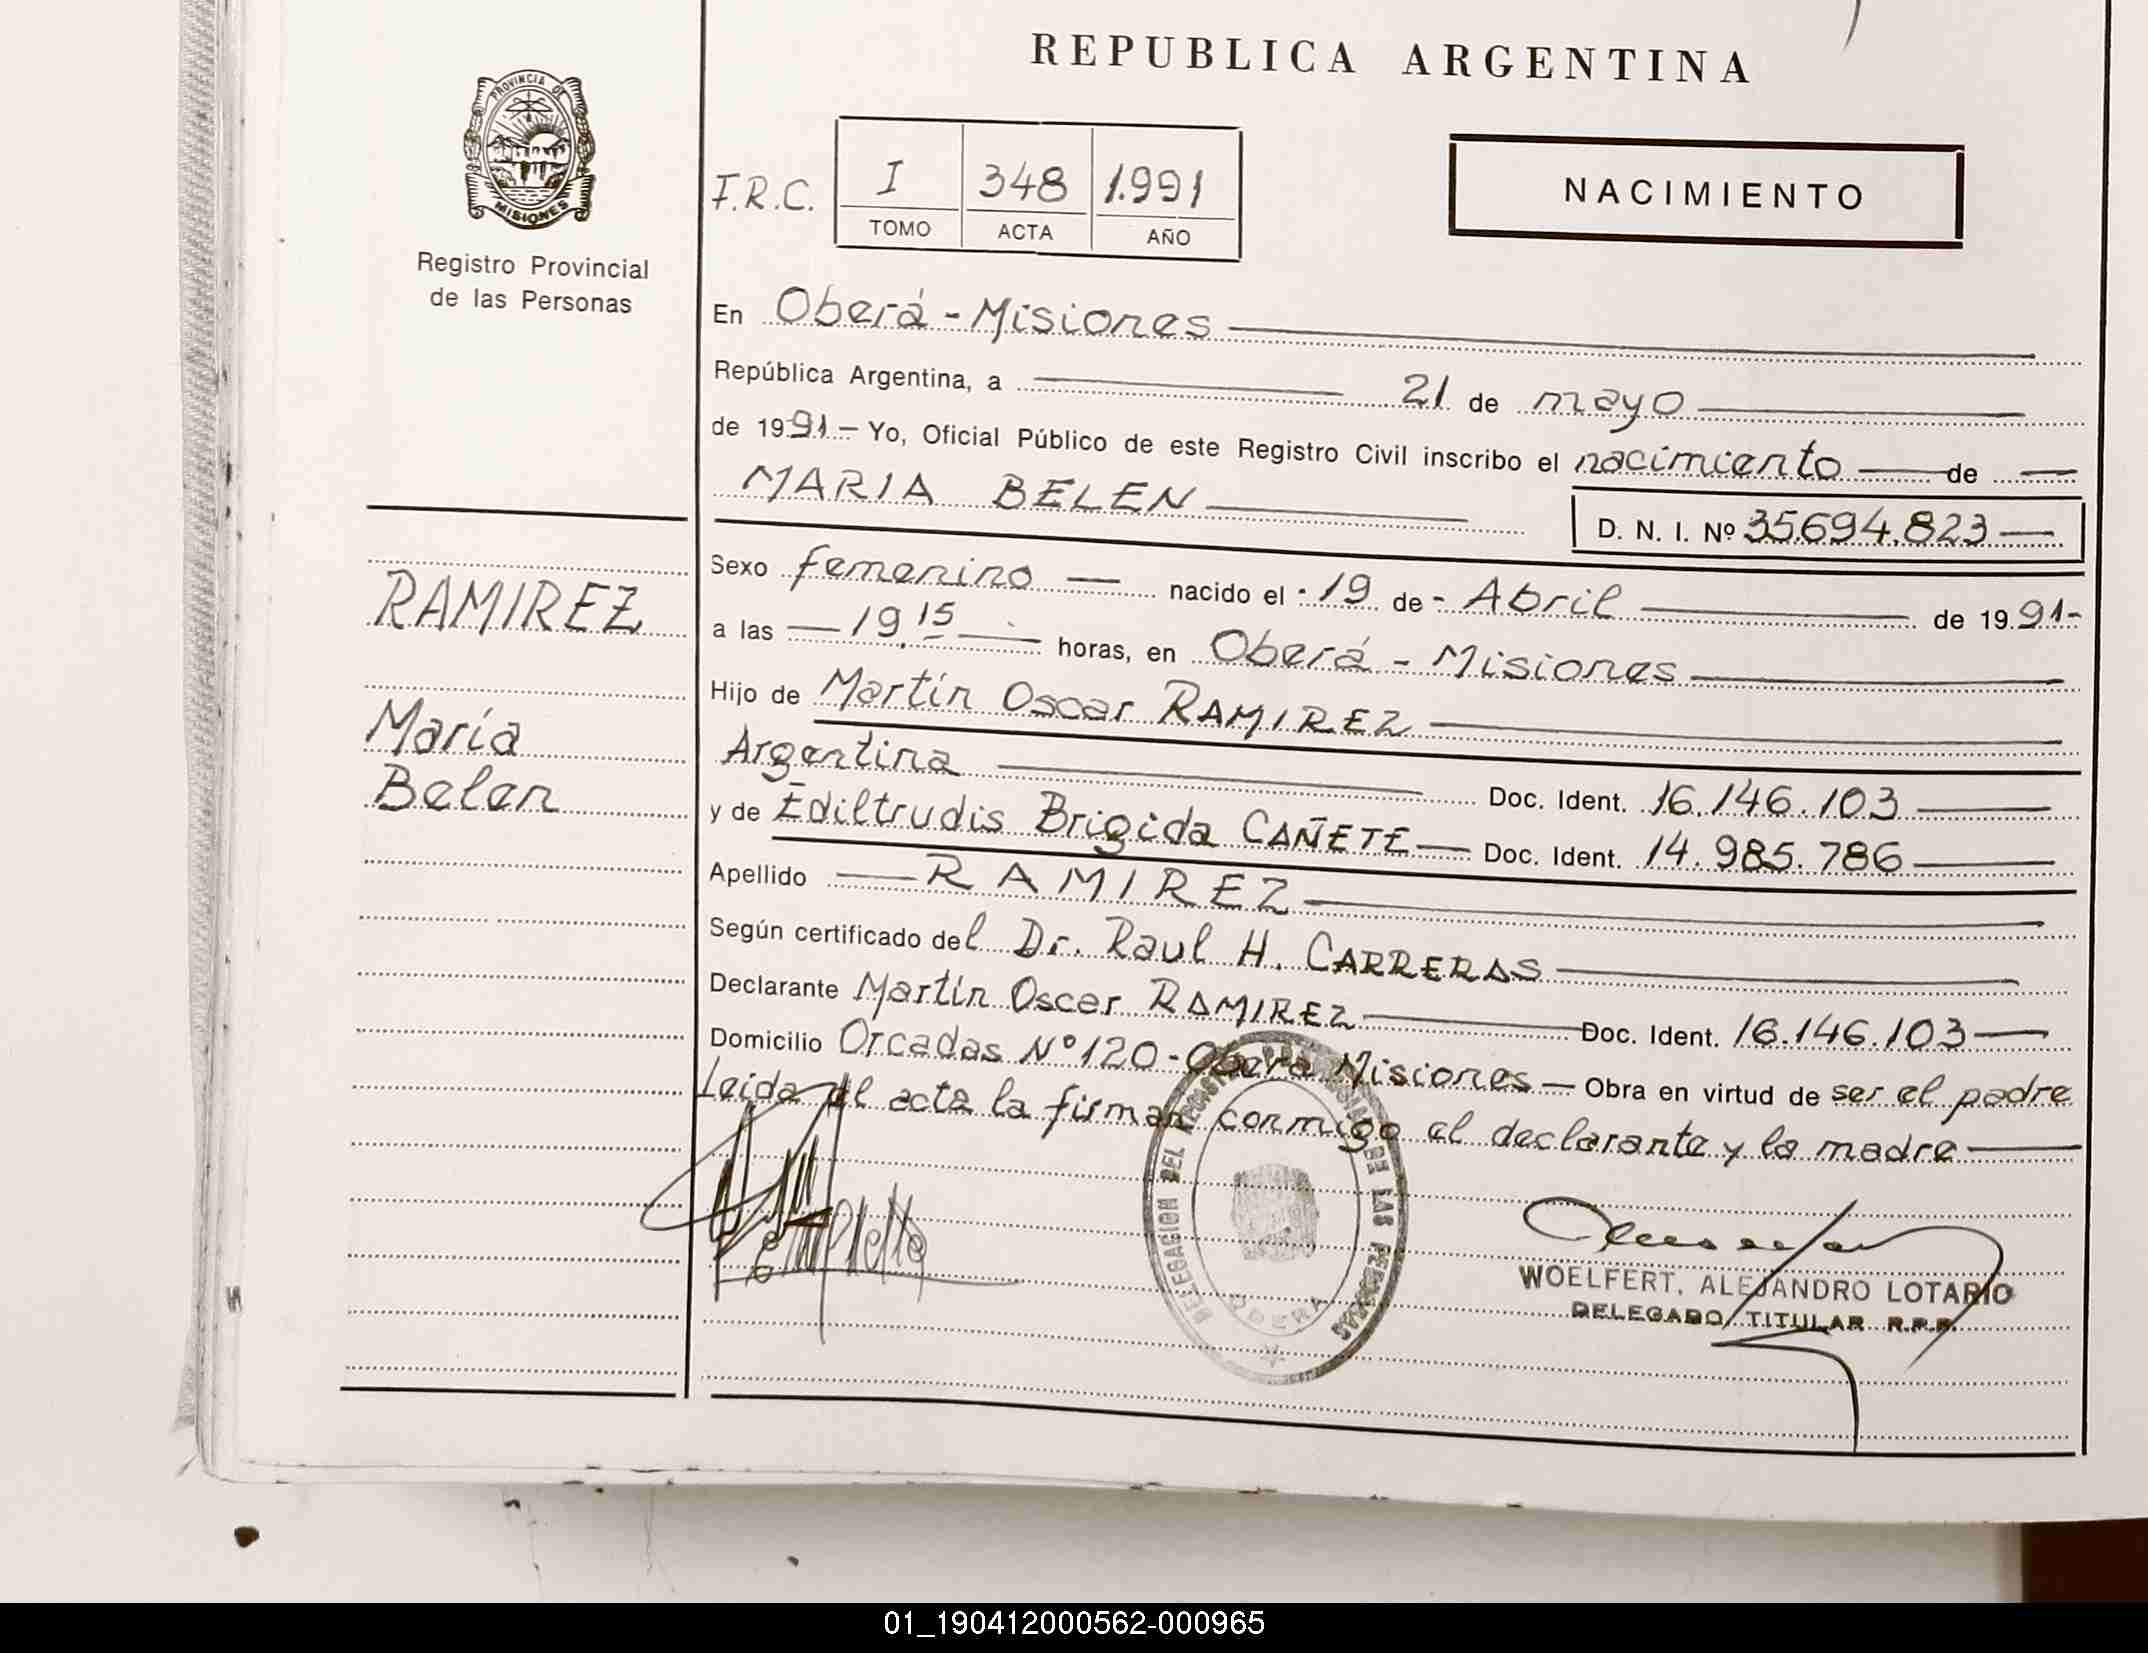 REPUBLICA ARGENTINA
PROVINCIA DE
MISIONES
Registro Provincial
de las Personas
F.R.C. I 348 1.991
TOMO ACTA AÑO
NACIMIENTO
En Oberá - Misiones
República Argentina, a 21 de mayo
de 1991 - Yo, Oficial Público de este Registro Civil inscribo el nacimiento de
MARIA BELEN
D. N. I. Nº 35.694.823
RAMIREZ
María
Belen
Sexo femenino nacido el 19 de - Abril de 1991-
a las 19.15 horas, en Oberá - Misiones
Hijo de Martín Oscar RAMIREZ
Argentina Doc. Ident. 16.146.103
y de Ediltrudis Brigida CAÑETE Doc. Ident. 14.985.786
Apellido RAMIREZ
Según certificado del Dr. Raul H. CARRERAS
Declarante Martín Oscar RAMIREZ Doc. Ident. 16.146.103
Domicilio Orcadas Nº 120 - Oberá Misiones - Obra en virtud de ser el padre
Leida el acta la firman conmigo el declarante y la madre
DELEGACION DEL REGISTRO PROVINCIAL DE LAS PERSONAS
OBERA
WOELFERT, ALEJANDRO LOTARIO
DELEGADO TITULAR R.P.P.
01_190412000562-000965